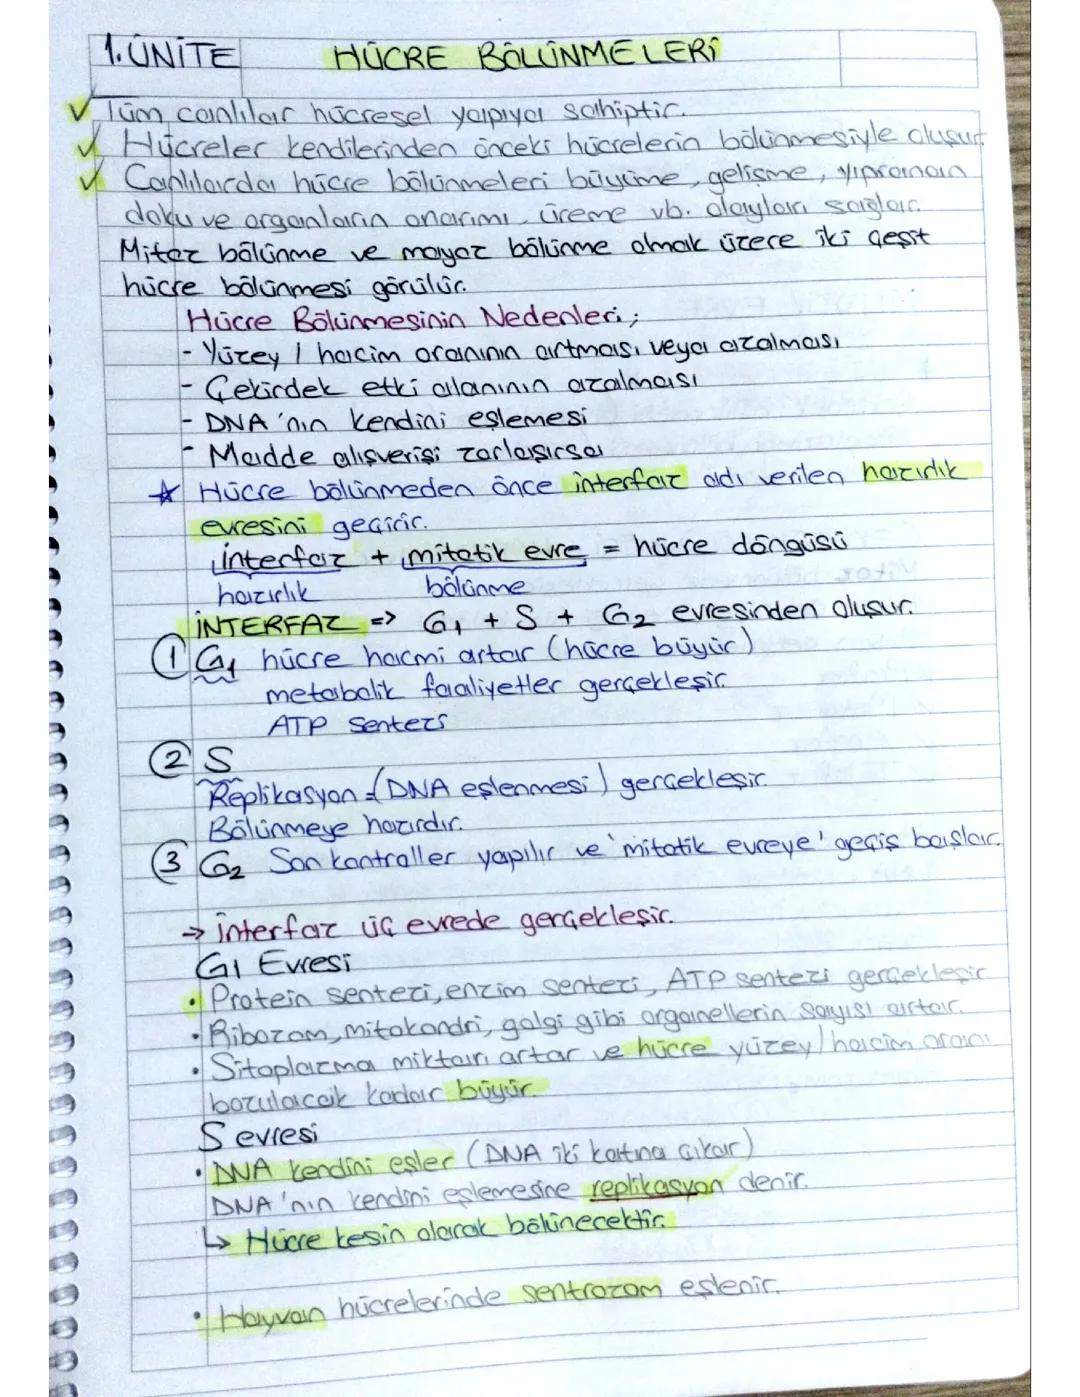 1.ÜNİTE HÜCRE BÖLÜNMELERİ
✓ Tüm canlılar hücresel yapıya sahiptir.
✓ Hücreler kendilerinden önceki hücrelerin bölünmesiyle oluşur.
✓ Canlılarda hücre bölünmeleri büyüme, gelişme, yıpranan
doku ve organların onarımı, üreme vb. olayları sağlar.
Mitoz bölünme ve mayoz bölünme olmak üzere iki çeşit
hücre bölünmesi görülür.
Hücre Bölünmesinin Nedenleri;
- Yüzey / hacim oranının artması veya azalması
- Çekirdek etki alanının azalması
- DNA'nın kendini eşlemesi
- Madde alışverişi zorlaşırsa
☆ Hücre bölünmeden önce interfaz adı verilen hazırlık
evresini geçirir.
interfaz + mitotik evre = hücre döngüsü
hazırlık bölünme
İNTERFAZ => G1 + S + G2 evresinden oluşur.
① G1 hücre hacmi artar (hücre büyür)
metabolik faaliyetler gerçekleşir.
ATP sentezi
② S
Replikasyon = (DNA eşlenmesi) gerçekleşir.
Bölünmeye hazırdır.
③ G2 Son kontroller yapılır ve 'mitotik evreye' geçiş başlar.
→ interfaz üç evrede gerçekleşir.
G1 Evresi
• Protein sentezi, enzim sentezi, ATP sentezi gerçekleşir
• Ribozom, mitokondri, golgi gibi organellerin sayısı artar.
• Sitoplazma miktarı artar ve hücre yüzey/hacim oranı
bozulacak kadar büyür.
S evresi
• DNA kendini eşler (DNA iki katına çıkar)
DNA'nın kendini eşlemesine replikasyon denir.
↳ Hücre kesin olarak bölünecektir.
• Hayvan hücrelerinde sentrozom eşlenir.